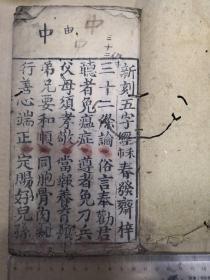 新刻五字經 春發齋梓
三十二機論 俗言奉勸君
聽者免瘟症 尊者免刀兵
父母須孝敬 當報養育恩
弟兄要和順 同胞骨肉親
行善心端正 定賜好兒孫
中 由 中
三十三